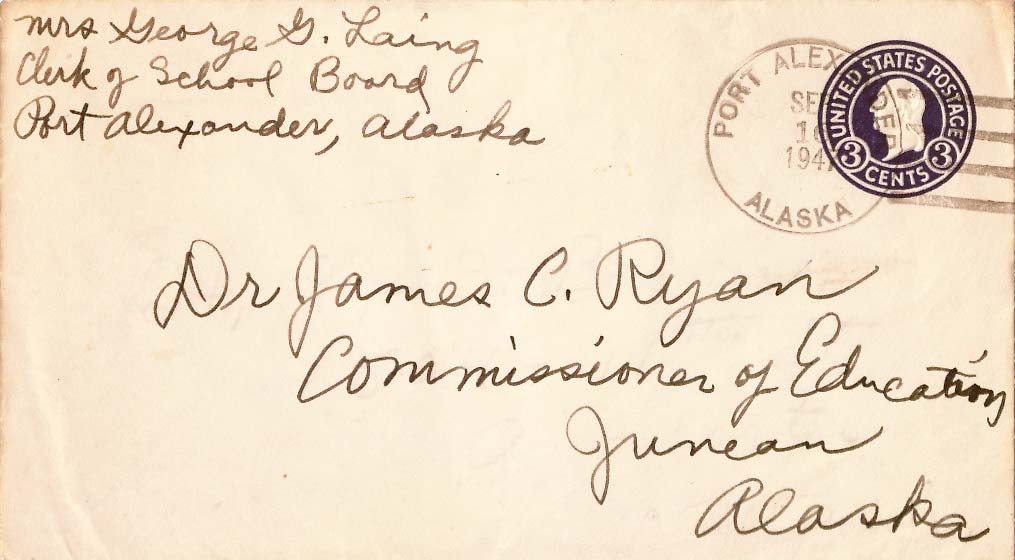 Mrs George G. Laing
Clerk of School Board
Port Alexander, Alaska
PORT ALEXANDER
SEP
1947
ALASKA
UNITED STATES POSTAGE
3 CENTS 3
Dr James C. Ryan
Commissioner of Education
Juneau
Alaska